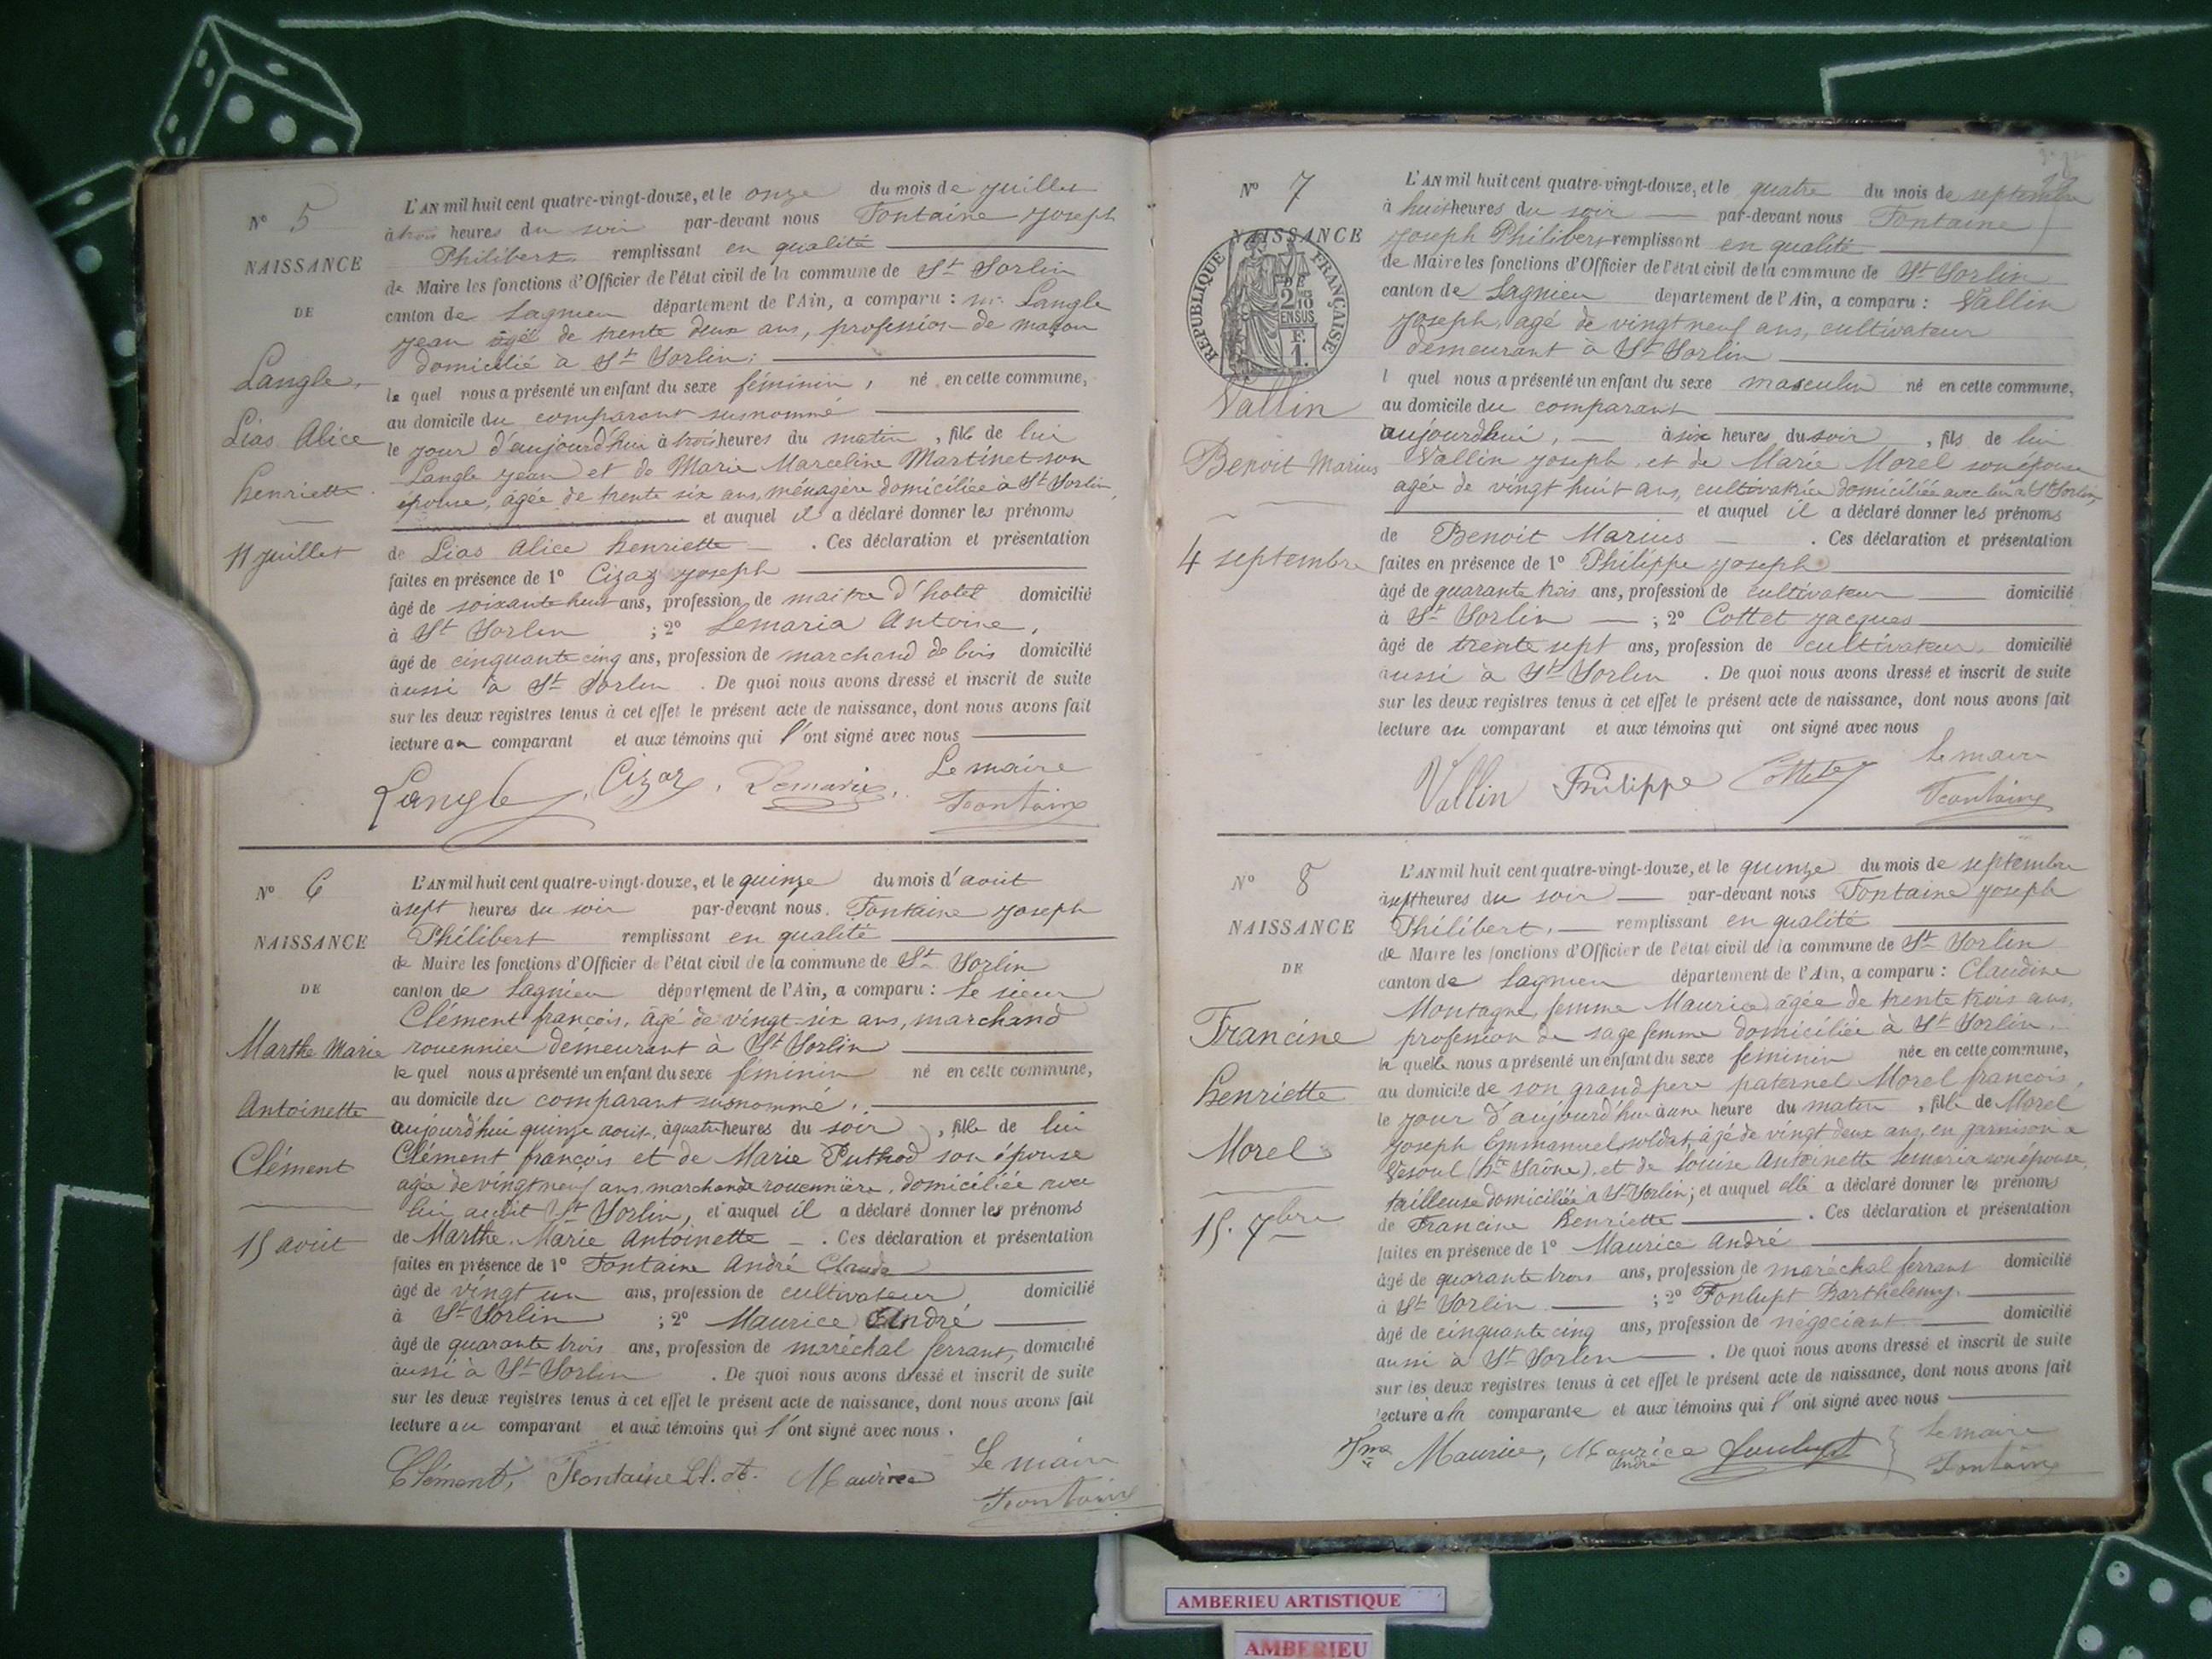 N° 5
NAISSANCE
DE
Langle
Lias Alice
henriette
11 juillet
L'AN mil huit cent quatre-vingt-douze, et le onze du mois de juillet
à trois heures du soir par-devant nous Fontaine joseph
Philibert remplissant en qualité
de Maire les fonctions d'Officier de l'état civil de la commune de St Sorlin
canton de Lagnieu département de l'Ain, a comparu : mr Langle
jean agé de trente deux ans, profession de maçon
domicilié à St Sorlin :
le quel nous a présenté un enfant du sexe féminin, né en cette commune,
au domicile du comparant susnommé
le jour d'aujourd'hui à trois heures du matin, fille de lui
Langle jean et de Marie Marceline Martinet son
épouse, agée de trente six ans, ménagère domiciliée à St Sorlin,
et auquel il a déclaré donner les prénoms
de Lias Alice henriette . Ces déclaration et présentation
faites en présence de 1° Cizaz joseph
âgé de soixante huit ans, profession de maitre d'hotel domicilié
à St Sorlin ; 2° Lemaria Antoine,
âgé de cinquante cinq ans, profession de marchand de bois domicilié
aussi à St Sorlin . De quoi nous avons dressé et inscrit de suite
sur les deux registres tenus à cet effet le présent acte de naissance, dont nous avons fait
lecture au comparant et aux témoins qui l'ont signé avec nous
Langle, Cizaz, Lemaria, Le maire
Fontaine
N° 6
NAISSANCE
DE
Marthe Marie
Antoinette
Clément
15 août
L'AN mil huit cent quatre-vingt-douze, et le quinze du mois d'août
à sept heures du soir par-devant nous Fontaine joseph
Philibert remplissant en qualité
de Maire les fonctions d'Officier de l'état civil de la commune de St Sorlin
canton de Lagnieu département de l'Ain, a comparu : le sieur
Clément françois, âgé de vingt-six ans, marchand
rouennier demeurant à St Sorlin
le quel nous a présenté un enfant du sexe féminin né en cette commune,
au domicile du comparant susnommé,
aujourd'hui quinze août, à quatre heures du soir, fille de lui
Clément françois et de Marie Puthod son épouse
agée de vingt neuf ans, marchande rouennière, domiciliée avec
lui audit St Sorlin, et auquel il a déclaré donner les prénoms
de Marthe. Marie Antoinette . Ces déclaration et présentation
faites en présence de 1° Fontaine André Claude
âgé de vingt un ans, profession de cultivateur domicilié
à St Sorlin ; 2° Maurice André
âgé de quarante trois ans, profession de maréchal ferrant, domicilié
aussi à St Sorlin . De quoi nous avons dressé et inscrit de suite
sur les deux registres tenus à cet effet le présent acte de naissance, dont nous avons fait
lecture au comparant et aux témoins qui l'ont signé avec nous.
Clément, Fontaine Maurice Le maire
Fontaine
N° 7
NAISSANCE
RÉPUBLIQUE FRANÇAISE
2
10
EN SUS
F.
1.
Vallin
Benoit Marius
4 septembre
L'AN mil huit cent quatre-vingt-douze, et le quatre du mois de septembre
à huit heures du soir par-devant nous Fontaine
joseph Philibert remplissant en qualité
de Maire les fonctions d'Officier de l'état civil de la commune de St Sorlin
canton de Lagnieu département de l'Ain, a comparu : Vallin
joseph, agé de vingt neuf ans, cultivateur
demeurant à St Sorlin
l quel nous a présenté un enfant du sexe masculin né en cette commune,
au domicile du comparant
aujourd'hui, à six heures du soir, fils de lui
Vallin joseph, et de Marie Morel son épouse
agée de vingt huit ans, cultivatrice domiciliée avec lui à St Sorlin,
et auquel il a déclaré donner les prénoms
de Benoit Marius . Ces déclaration et présentation
faites en présence de 1° Philippe joseph
âgé de quarante trois ans, profession de cultivateur domicilié
à St Sorlin ; 2° Cottet jacques
âgé de trente sept ans, profession de cultivateur domicilié
aussi à St Sorlin . De quoi nous avons dressé et inscrit de suite
sur les deux registres tenus à cet effet le présent acte de naissance, dont nous avons fait
lecture au comparant et aux témoins qui ont signé avec nous
Vallin Philippe Cottet Le maire
Fontaine
N° 8
NAISSANCE
DE
Francine
henriette
Morel
15. 7bre
L'AN mil huit cent quatre-vingt-douze, et le quinze du mois de septembre
à sept heures du soir par-devant nous Fontaine joseph
Philibert, remplissant en qualité
de Maire les fonctions d'Officier de l'état civil de la commune de St Sorlin
canton de Lagnieu département de l'Ain, a comparu : Claudine
Montagne, femme Maurice, agée de trente trois ans,
profession de sage femme domiciliée à St Sorlin,
la quelle nous a présenté un enfant du sexe féminin née en cette commune,
au domicile de son grand pere paternel Morel françois,
le jour d'aujourd'hui à une heure du matin, fille de Morel
joseph Emmanuel, soldat, âgé de vingt deux ans, en garnison a
Vesoul (hte Saône), et de Louise Antoinette Lemaria son épouse,
tailleuse domiciliée à St Sorlin; et auquel elle a déclaré donner les prénoms
de Francine henriette . Ces déclaration et présentation
faites en présence de 1° Maurice André
âgé de quarante trois ans, profession de maréchal ferrant domicilié
à St Sorlin ; 2° Fonlupt Barthelemy.
âgé de cinquante cinq ans, profession de négociant domicilié
aussi à St Sorlin . De quoi nous avons dressé et inscrit de suite
sur les deux registres tenus à cet effet le présent acte de naissance, dont nous avons fait
lecture à la comparante et aux témoins qui l'ont signé avec nous
Fme Maurice, Maurice André Fonlupt Le maire
Fontaine
AMBERIEU ARTISTIQUE
AMBERIEU